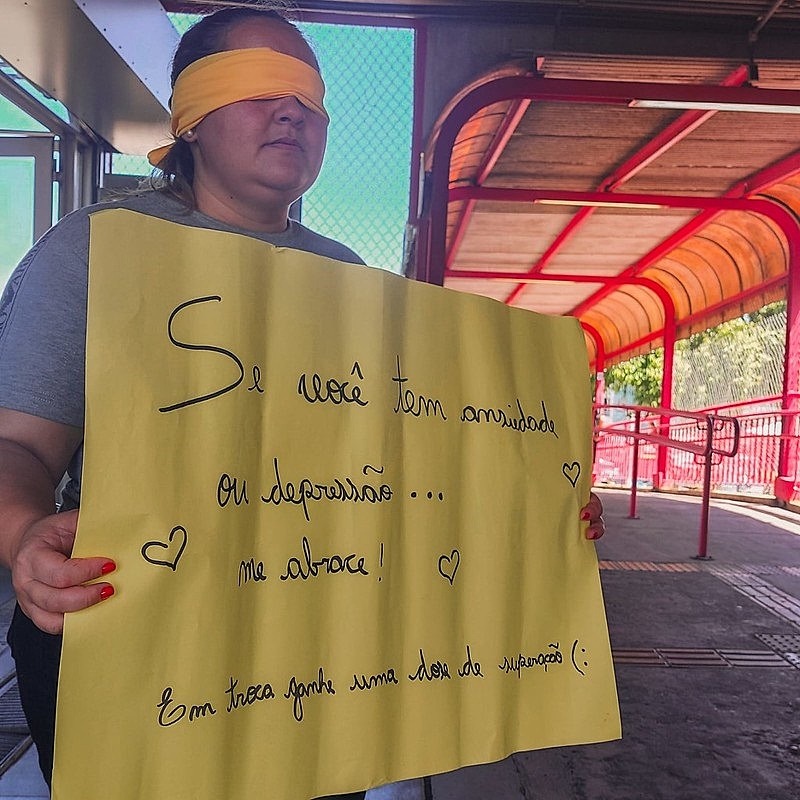 Se você tem ansiedade
ou depressão ...
me abrace!
Em troca ganhe uma dose de superação (: